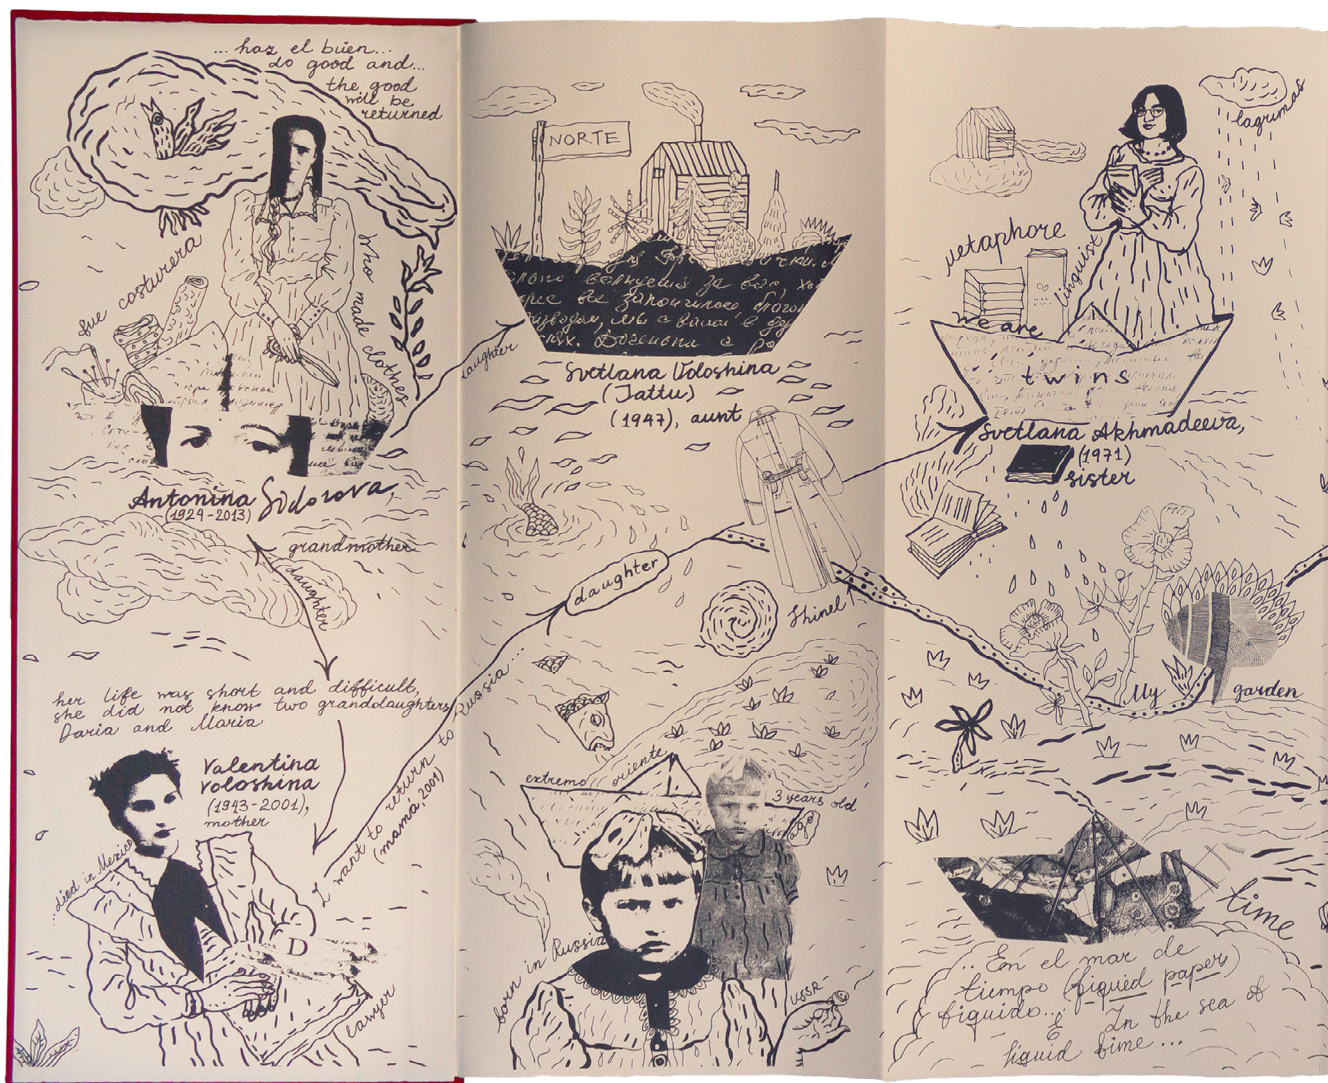 ... haz el buen...
do good and...
the good
will be
returned
fue costurera
who made clothes
Antonina Sidorova,
(1924-2013)
grandmother
daughter
her life was short and difficult,
she did not know two granddaughters
Daria and Maria
Valentina
Voloshina
(1943-2001),
mother
...died in Mexico
D
lawyer
I want to return to Russia...
(mama, 2001)
daughter
NORTE
Svetlana Voloshina
(Tattu)
(1947), aunt
daughter
Shinel
extremo oriente
3 years old
ago
born in Russia
USSR
lagrimas
metaphore
linguist
we are
twins
Svetlana Akhmadeeva,
(1971)
sister
My garden
time
.. En el mar de
tiempo (liquid paper)
liquido...
In the sea of
liquid time...